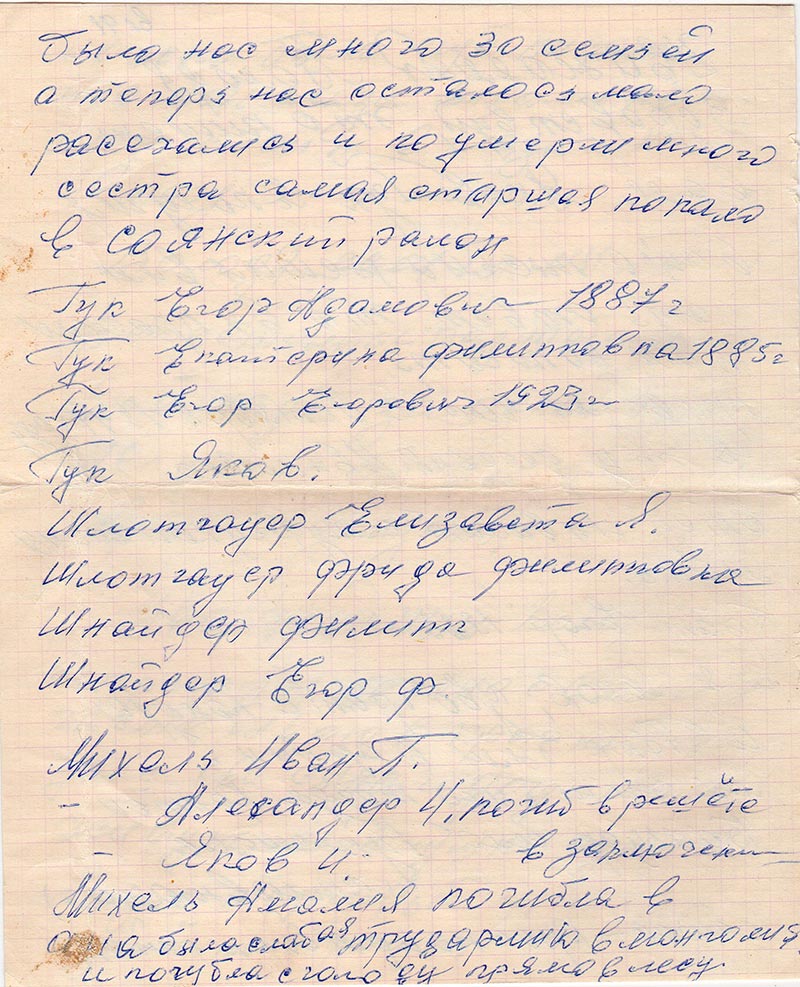 было нас много 30 семьей
а теперь нас осталось мало
расехались и поумерли много
сестра самая старшая попала
в СОЯНСКИЙ район
Гук Егор Адамович 1887 г
Гук Екатерина Филипповна 1885 г
Гук Егор Егорович 1923 г
Гук Яков.
Шлотгауер Елизавета Я.
Шлотгауер Фрида Филипповна
Шнайдер Филипп
Шнайдер Егор Ф.
Михель Иван П.
– Александер И, погиб в решёте
– Яков И. в заключени
Михель Амалия погибла в
она была слабая трудармию в монголий
и погибла с голоду прямо в лесу.